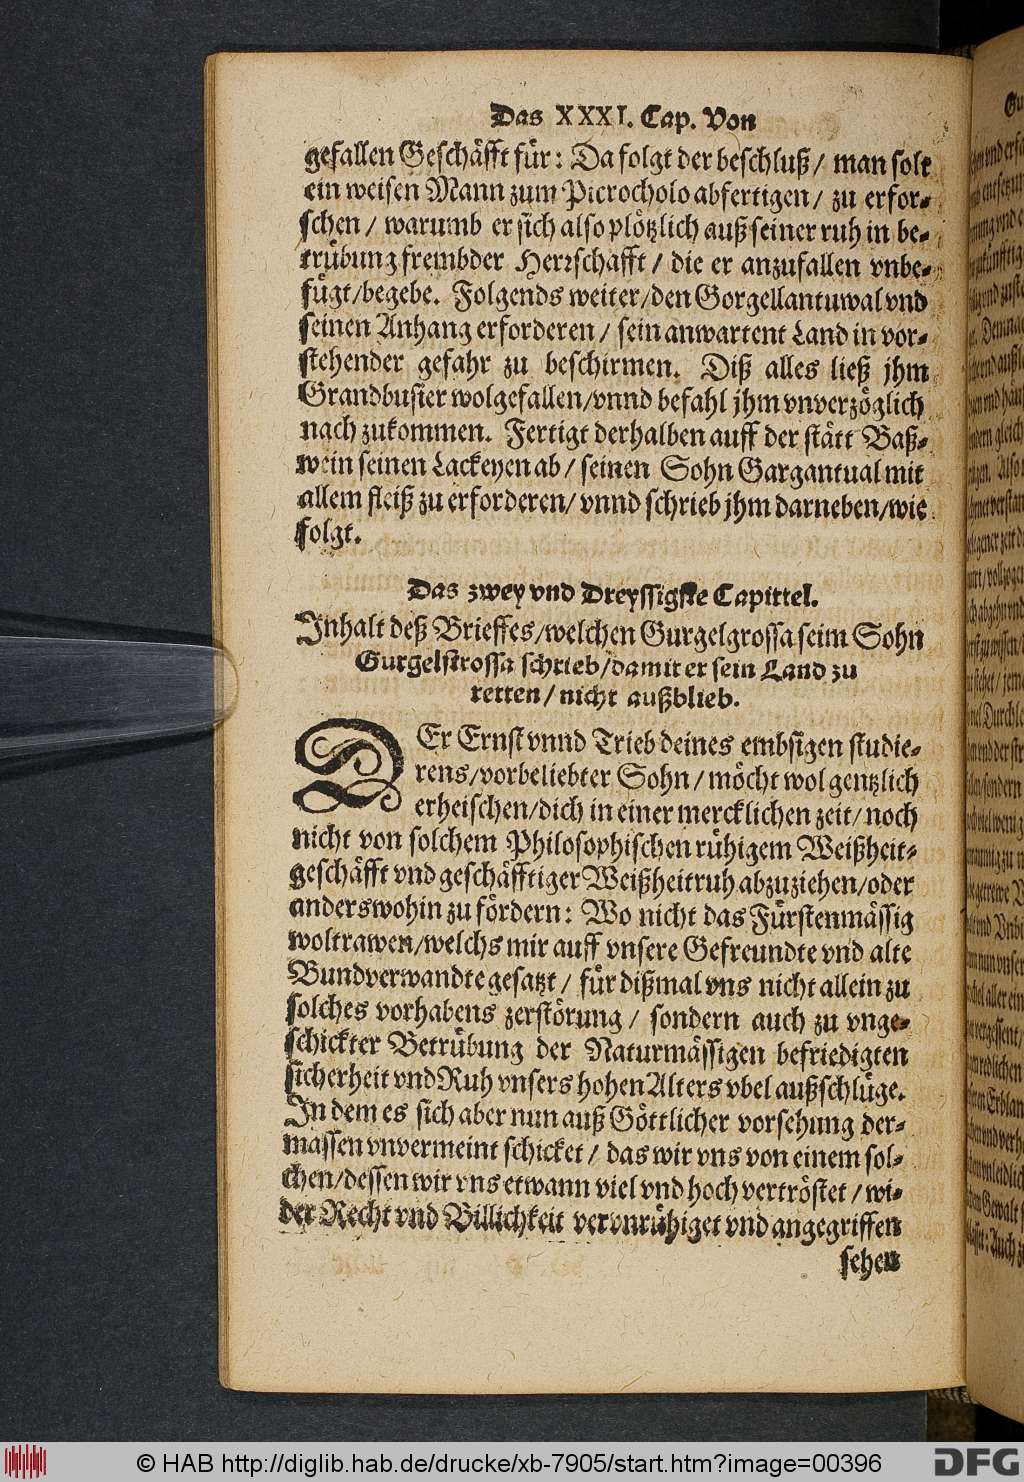 Das XXXI. Cap. Von
gefallen Geschäfft für: Da folgt der beschluß/ man solt
ein weisen Mann zum Picrocholo abfertigen/ zu erfor-
schen/ warumb er sich also plötzlich auß seiner ruh in be-
trübung frembder Herrschafft/ die er anzufallen vnbe-
fügt/begebe. Folgends weiter/den Gorgellantuwal vnd
seinen Anhang erforderen/ sein anwartent Land in vor-
stehender gefahr zu beschirmen. Diß alles ließ jhm
Grandbusier wolgefallen/vnnd befahl jhm vnverzöglich
nach zukommen. Fertigt derhalben auff der stätt Baß-
wein seinen Lackeyen ab/ seinen Sohn Gargantual mit
allem fleiß zu erforderen/ vnnd schrieb jhm darneben/wie
folgt.
Das zwey vnd Dreyssigste Capittel.
Inhalt deß Brieffes/welchen Gurgelgrossa seim Sohn
Gurgelstrossa schrieb/damit er sein Land zu
retten/ nicht außblieb.
DEr Ernst vnnd Trieb deines embsigen studie-
rens/vorbeliebter Sohn/ möcht wol gentzlich
erheischen/dich in einer mercklichen zeit/ noch
nicht von solchem Philosophischen rühigem Weißheit-
geschäfft vnd geschäfftiger Weißheitruh abzuziehen/oder
anderswohin zu fördern: Wo nicht das Fürstenmässig
woltrawen/welchs mir auff vnsere Gefreundte vnd alte
Bundverwandte gesatzt/ für dißmal vns nicht allein zu
solches vorhabens zerstörung/ sondern auch zu vnge-
schickter Betrübung der Naturmässigen befriedigten
sicherheit vnd Ruh vnsers hohen Alters vbel außschlüge.
In dem es sich aber nun auß Göttlicher vorsehung der-
massen vnvermeint schicket/ das wir vns von einem sol-
chen/dessen wir vns etwann viel vnd hoch vertröstet/ wi-
der Recht vnd Billichkeit verunrühiget vnd angegriffen
sehen
© HAB http://diglib.hab.de/drucke/xb-7905/start.htm?image=00396
DFG